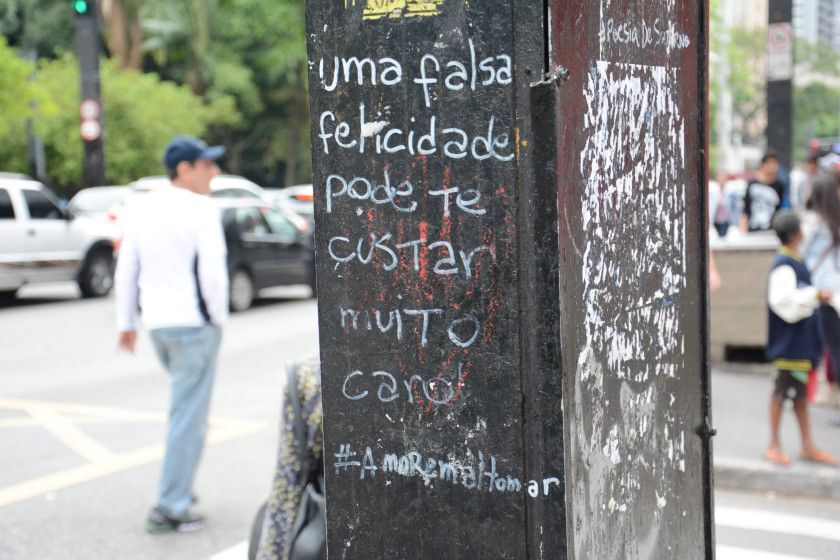 uma falsa
felicidade
pode te
custar
muito
caro!
#AmoRemaltomar